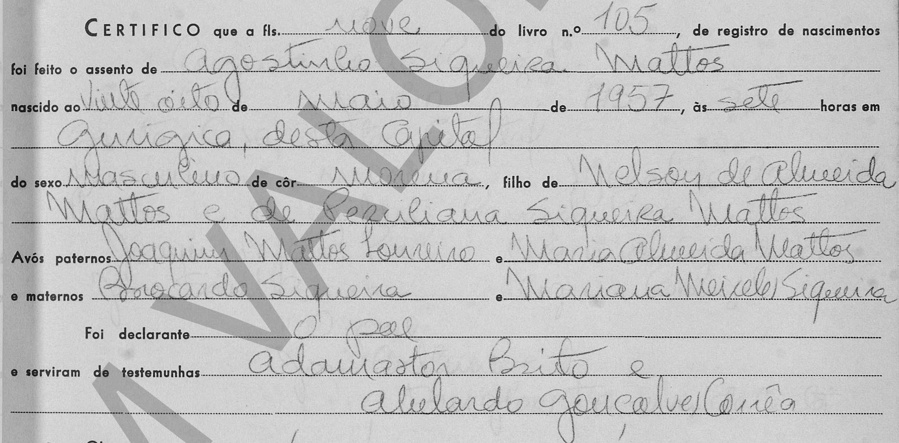 CERTIFICO que a fls. nove do livro n.º 105, de registro de nascimentos
foi feito o assento de Agostinho Siqueira Mattos
nascido ao vinte oito de maio de 1957, às sete horas em
Gurigica, desta Capital
do sexo masculino de côr morena, filho de Nelson de Almeida
Mattos e de Peziliana Siqueira Mattos
Avós paternos Joaquim Mattos Loureiro e Maria Almeida Mattos
e maternos Brocardo Siqueira e Mariana Meireles Siqueira
Foi declarante o pae
e serviram de testemunhas Adamastor Brito e
Abelardo Gonçalves Corrêa
M VALO